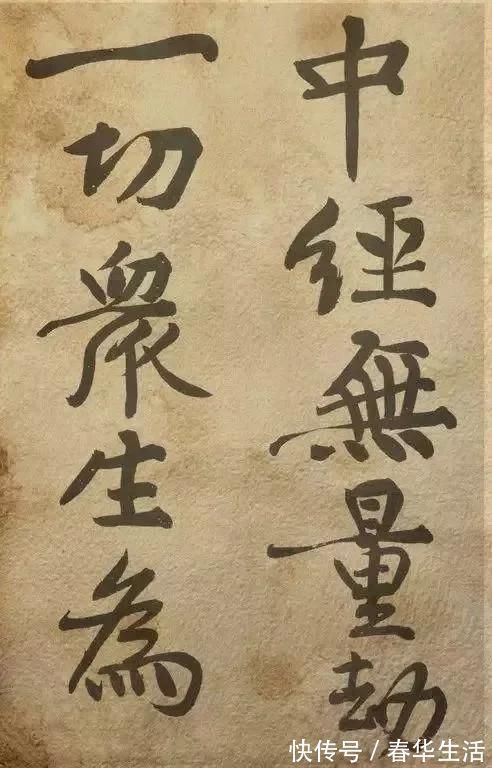 中經無量劫
一切衆生為
快传号/春华生活